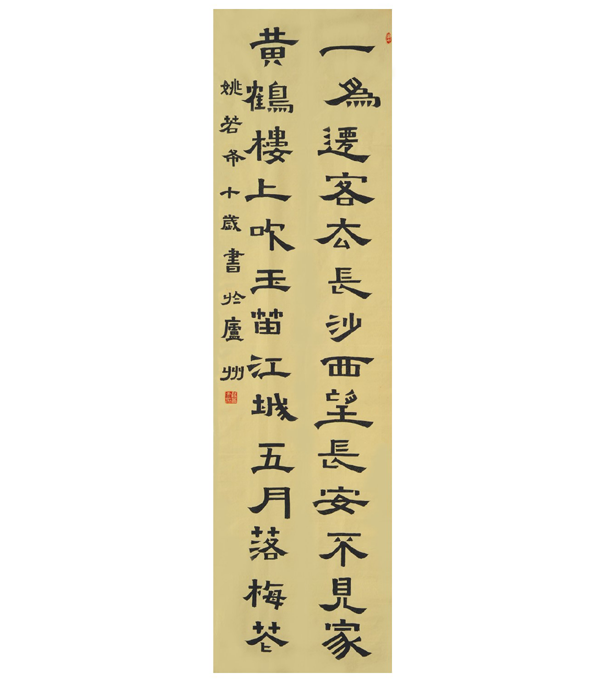 一為遷客去長沙西望長安不見家
黄鶴樓上吹玉笛江城五月落梅花
姚若希十歲書於廬州